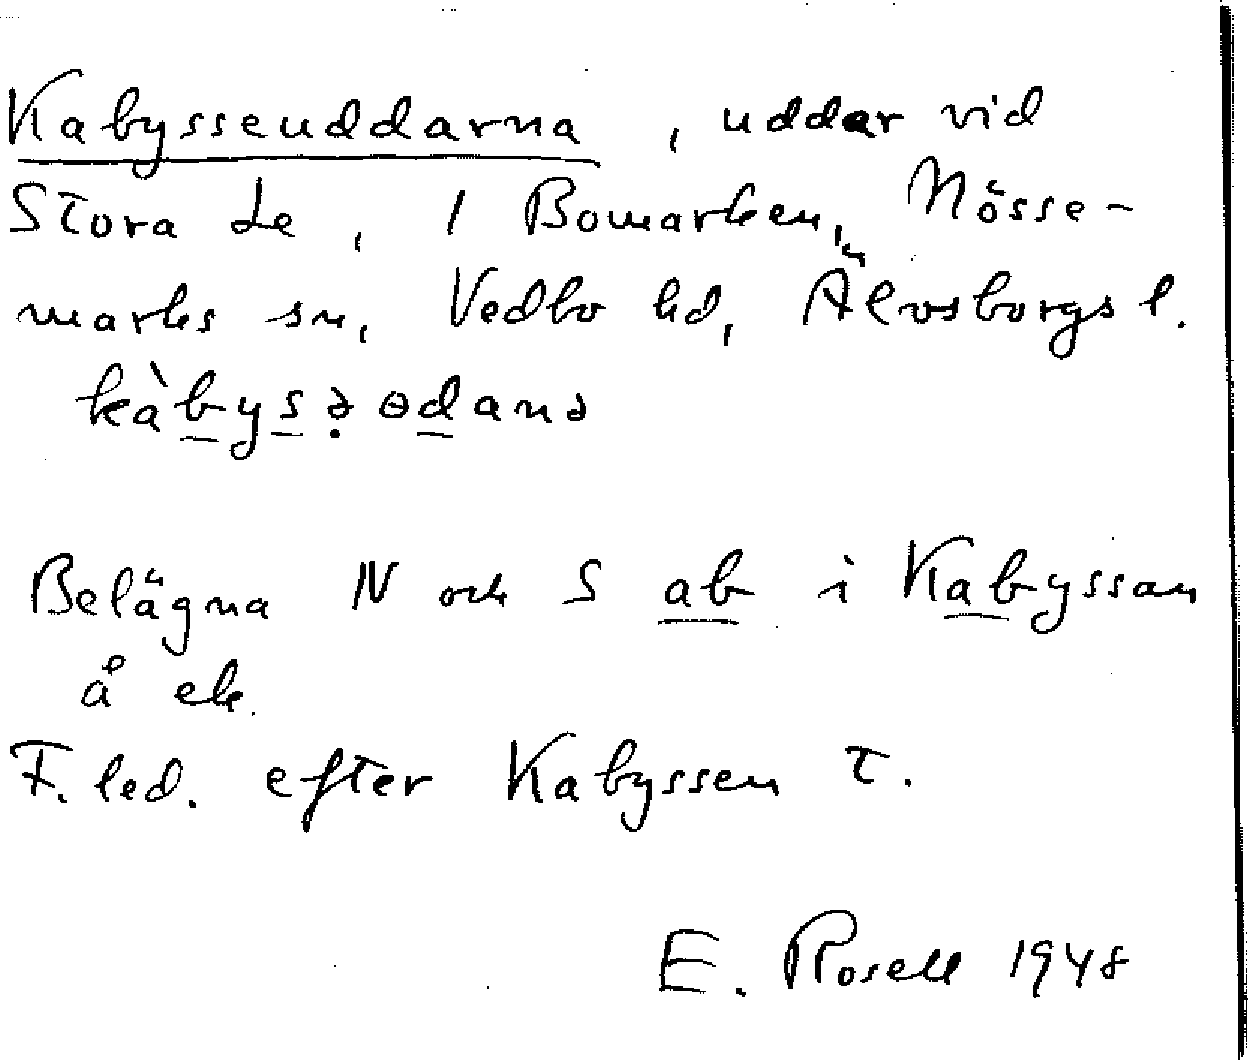 Kabysseuddarna, uddar vid
Stora Le, 1 Bomarken, Nösse-
marks sn, Vedbo hd, Älvsborgs l.
kàbysə ɵdanə
Belägna N och S ab i Kabyssan
å ek.
F. led. efter Kabyssen T.
E. Rosell 1948